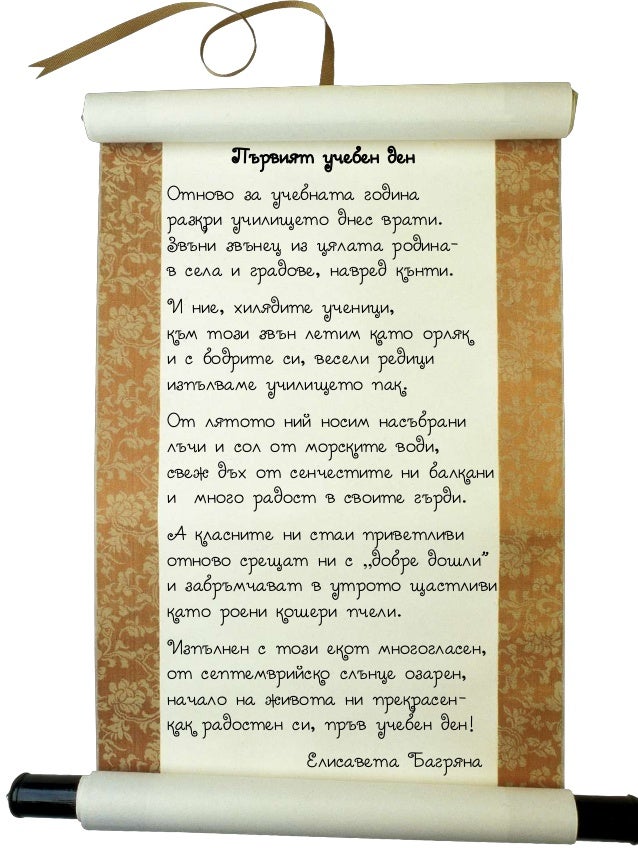 Първият учебен ден
Отново за учебната година
разкри училището днес врати.
Звъни звънец из цялата родина-
в села и градове, навред кънти.
И ние, хилядите ученици,
към този звън летим като орляк
и с бодрите си, весели редици
изпълваме училището пак.
От лятото ний носим насъбрани
лъчи и сол от морските води,
свеж дъх от сенчестите ни балкани
и много радост в своите гърди.
А класните ни стаи приветливи
отново срещат ни с „добре дошли”
и забръмчават в утрото щастливи
като роени кошери пчели.
Изпълнен с този екот многогласен,
от септемврийско слънце озарен,
начало на живота ни прекрасен-
как радостен си, пръв учебен ден!
Елисавета Багряна